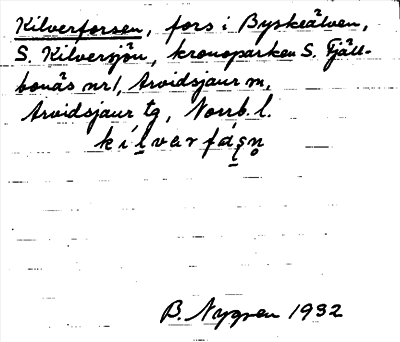 Kilverforsen, fors i Byskeälven,
S. Kilversjön, kronoparken S. Fjäll-
bonäs nr 1, Arvidsjaur sn,
Arvidsjaur tg, Norrb. l.
kilvarfåșn̥
B. Nygren 1932